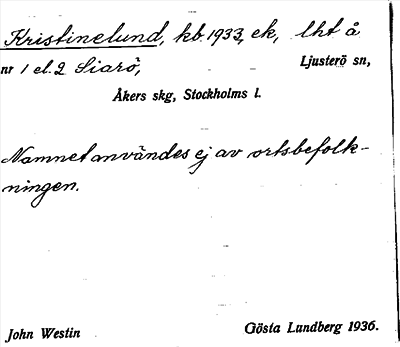 Kristinelund, kb. 1933, ek, lht å
nr 1 el. 2 Siarö, Ljusterö sn,
Åkers skg, Stockholms l.
Namnet användes ej av ortsbefolk-
ningen.
John Westin Gösta Lundberg 1936.